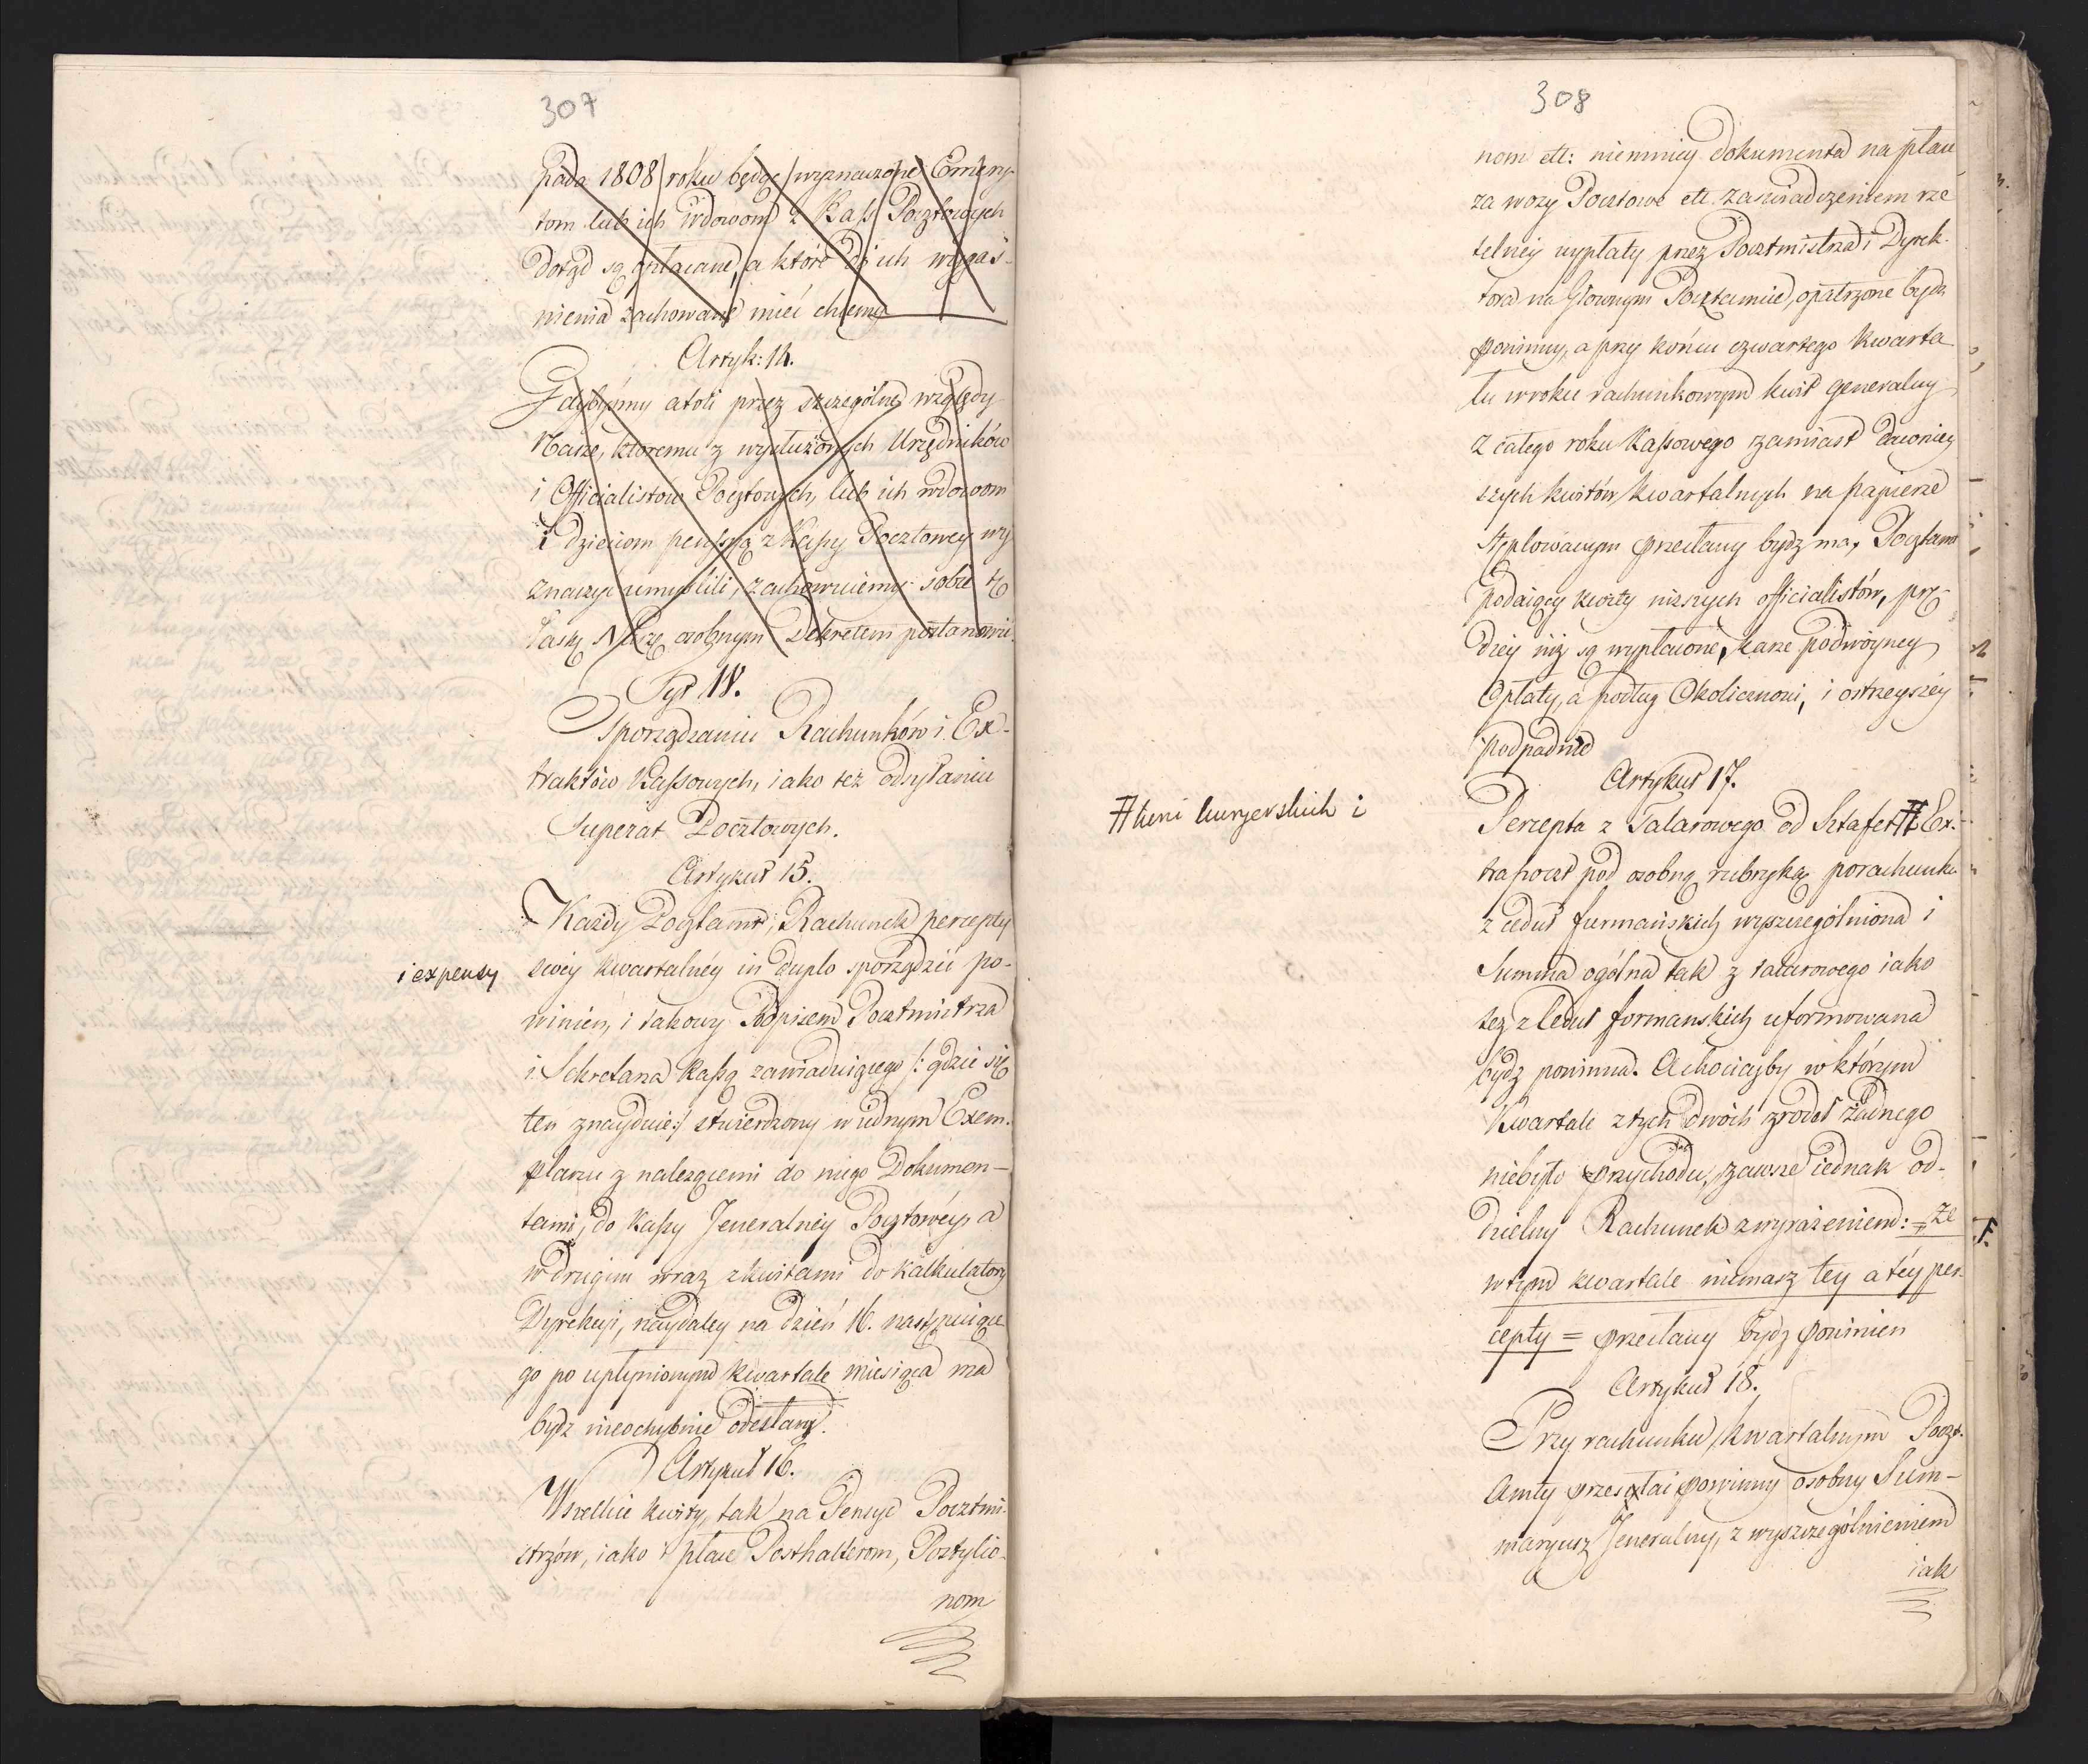 307
pada 1808 roku będąc wyznaczone Emery-
tom lub ich Wdowom z Kass Pocztowych
dotąd są opłacane, a które do ich wygaś-
nienia zachowane mieć chcemy
Artyk: 14.
Gdybyśmy atoli przez szczególne względy
Nasze, ktoremu z wysłużonych Urzędników
i Officialistów Pocztowych, lub ich wdowom
i Dzieciom penssyą z Kassy Pocztowey wy
znaczyć umyslili, zachowuiemy sobie tę
łaskę Naszę osobnym Dekretem postanowić.
Tyt IV.
O sporządzaniu Rachunków i Ex-
traktów Kassowych, iako też odsyłaniu
Superat Pocztowych.
Artykuł 15.
Każdy Pocztamt, Rachunek percepty
i expensy
swéy kwartalnéy in duplo sporządzić po-
winien, i takowy Podpisem Pocztmistrza
i Sekretarza Kassą zawiaduiącego /: gdzie się
ten znayduie :/ stwierdzony w iednym Exem-
plarzu z należącemi do niego Dokumen-
tami, do Kassy Jeneralnéy Pocztowéy, a
w drugim wraz z kwitami do Kalkulatory
Dyrekcyi, naydaley na dzień 16. następuiące
go po upłynionym kwartale miesiąca ma
bydz nieochybnie odesłany.
Artykuł 16.
Wszelkie kwity, tak na Pensye Pocztmi-
strzów, iako i płace Posthalterom, Postylio-
nom
308
nom ett: niemniey dokumenta na płace
za wozy Pocztowe ett. zaświadczeniem rze
telnéy wypłaty przez Pocztmistrza i Dyrek-
tora na Głownym Pocztamcie, opatrzone bydz
powinny, a przy końcu czwartego Kwarta
łu w roku rachunkowym kwit generalny
z całego roku Kassowego zamiast dawniey
szych kwitów kwartalnych na papierze
stęplowanym przesłany bydz ma, Pocztamt
podaiący kwity niższych officialistów, prę-
dzey niż są wypłacone, karze podwóyney
Opłaty, a podług Okoliczności, i ostrzeyszéy
podpadnie
Artykuł 17.
# teni kuryerskich i
Percepta z Talarowego od Sztafet # Ex-
trapoczt pod osobną rubryką porachunku
z ceduł furmańskich wyszczególniona i
Summa ogólna tak z talarowego iako
też z Ceduł formanskich uformowana
bydz powinna. A chociażby w którym
Kwartale z tych dwóch źrodeł żadnego
niebyło przychodu, zawsze iednak od-
dzielny Rachunek z wyrażeniem: = że
w tym kwartale niemasz tey a téy per-
cepty = przesłany bydz powinien
Artykuł 18.
Przy rachunku kwartalnym Poczt-
Amty przesyłać powinny osobny Sum-
maryusz Jeneralny, z wyszczególnieniem
iak